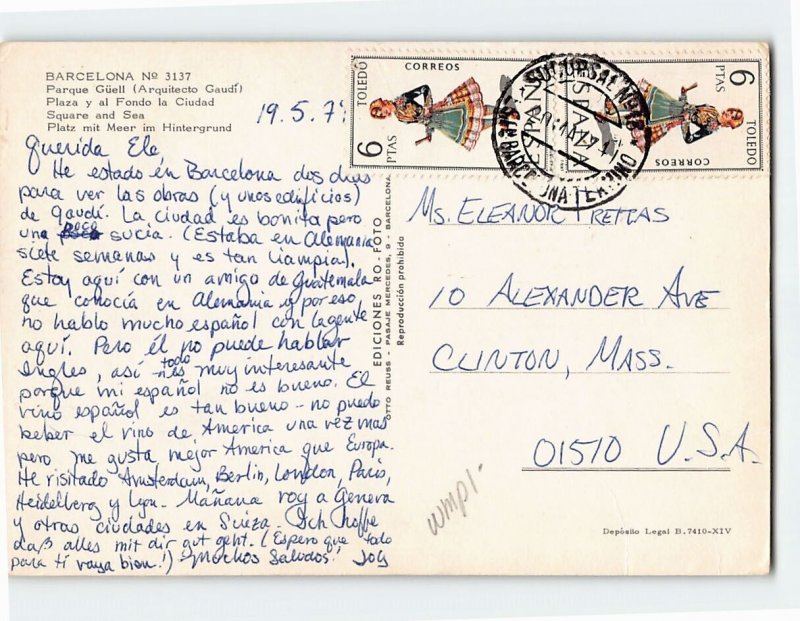 BARCELONA Nº 3137
Parque Güell (Arquitecto Gaudí)
Plaza y al Fondo la Ciudad
Square and Sea
Platz mit Meer im Hintergrund
19.5.71
Querida Ele
He estado en Barcelona dos dias
para ver las obras (y unos edificios)
de Gaudí. La ciudad es bonita pero
una poca sucia. (Estaba en Alemania
siete semanas y es tan liampia).
Estoy aquí con un amigo de Guatemala
que conocía en Alemania y por eso
no hablo mucho español con la gente
aquí. Pero él no puede hablar
Ingles, así todo es muy interesante
porque mi español no es bueno. El
vino español es tan bueno - no puedo
beber el vino de America una vez mas
pero me gusta mejor America que Europa.
He visitado Amsterdam, Berlin, London, Paris,
Heidelberg y Lyon. Mañana voy a Geneva
y otras ciudades en Suiza. Ich hoffe
daß alles mit dir gut geht. (Espero que todo
para ti vaya bien!) Muchos Saludos!
EDICIONES RO-FOTO
OTTO REUSS - PASAJE MERCEDES, 9 - BARCELONA
Reproducción prohibida
TOLEDO
CORREOS
6 PTAS
ESPAÑA
6 PTAS
TOLEDO
CORREOS
ESPAÑA
SUCURSAL Nº
BARCELONA
Ms. ELEANOR FREITAS
10 ALEXANDER AVE
CLINTON, MASS.
01510 U.S.A.
Depósito Legal B. 7410-XIV